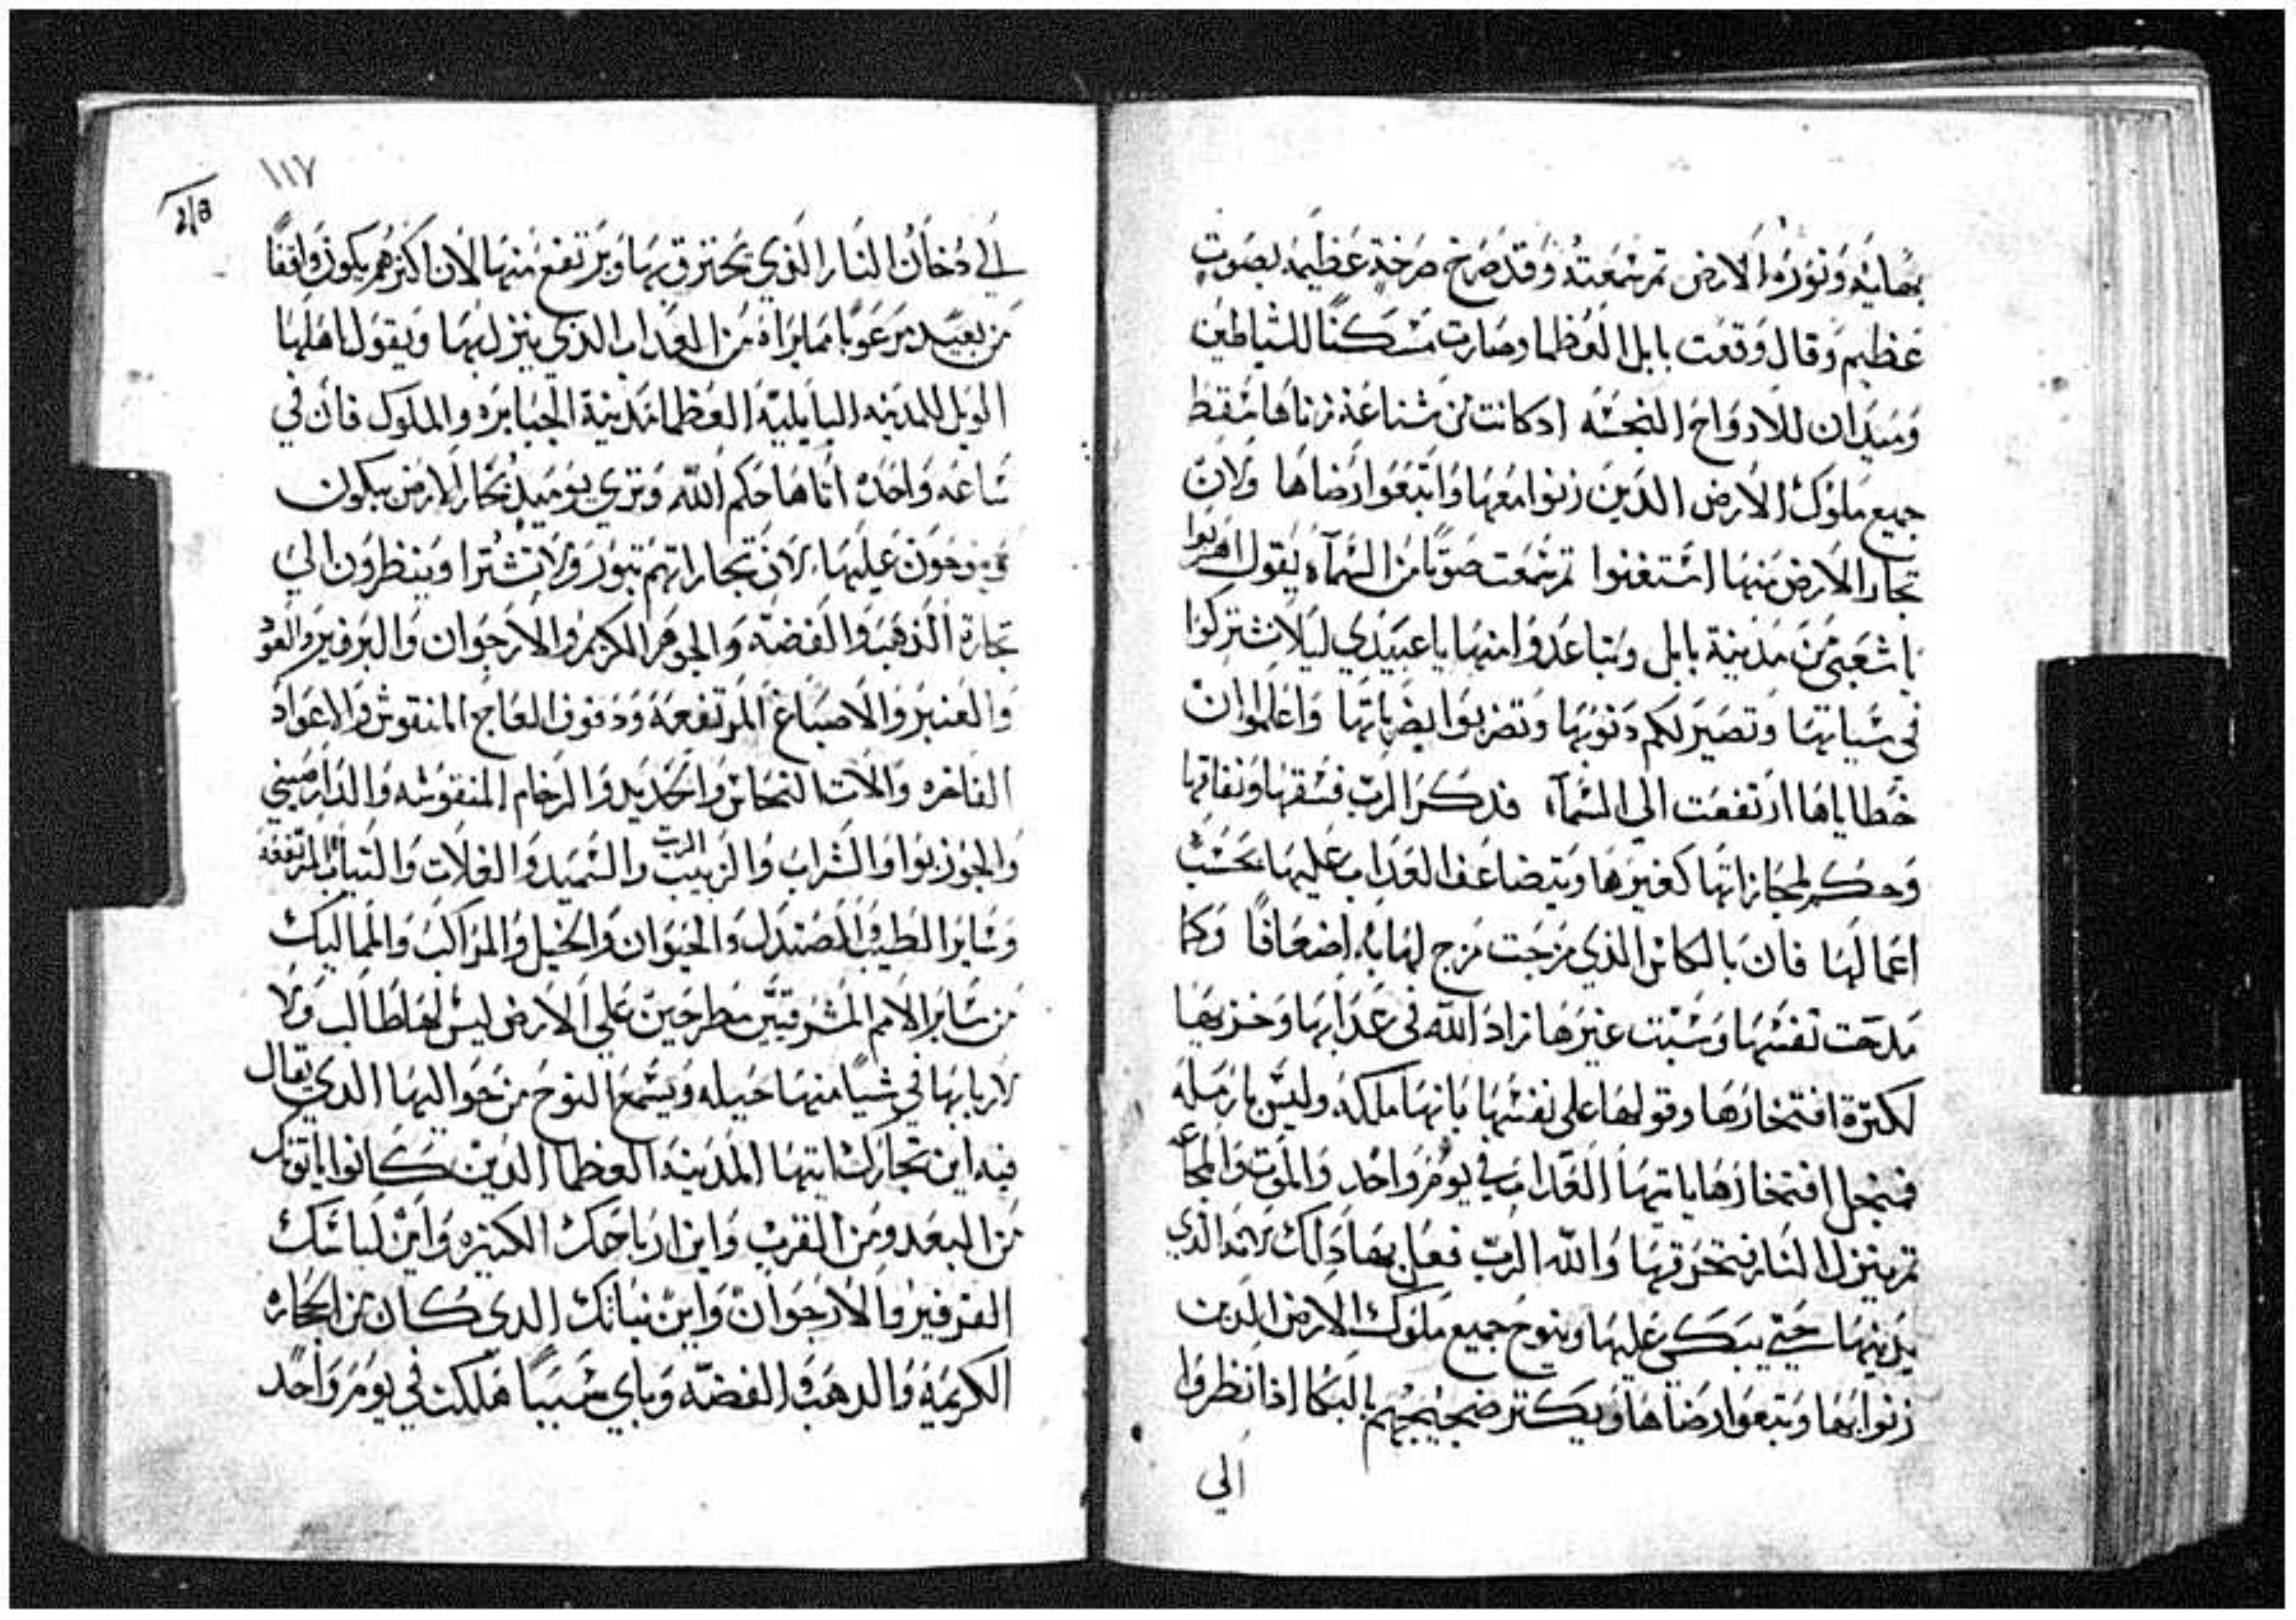 بهائه ونوره الارض ثم سمعته وقد صرخ صرخة عظيمه بصوت
عظيم وقال وقعت بابل العظما وصارت مسكنًا للشياطين
وميدان للارواح النجسه اد كانت من شناعة زناها سقط
جميع ملوك الارض الدين زنوا معها واتبعوا رضاها ولان
تجار الارض منها استغنوا ثم سمعت صوتًا من السمآء يقول اهربوا
يا شعبي من مدينة بابل وتباعدوا منها يا عبيدي ليلا تشتركوا
في سياتها وتصير لكم دنوبها وتضربوا بضرباتها واعلموا ان
خطاياها ارتفعت الي السمآء فدكر الرب فسقها ونفاقها
وحكم لمجازاتها كغيرها ويتضاعف العداب عليها بحسب
اعمالها فان بالكاس الذي مزجت مزج لها به اضعافًا وكما
مدحت نفسها وسبت غيرها زاد الله في عدابها وخزيها
لكترة افتخارها وقولها علي نفسها بانها ملكه وليس بارمله
فمنجل افتخارها ياتيها العداب في يوم واحد والموت والمجاعه
ثم ينزل النار فتحرقها والله الرب فعل بهادالك الذي
يدينها حتي يبكي عليها وينوح جميع ملوك الارض الدين
زنوا بها وتبعوا رضاها ويكتر ضجيجهم بالبكا اذا نظروا
الي
١١٧
الي دخان النار الذي يحترق بها ويرتفع منها لان اكترهم يكون واقفًا
من بعيد مرعوبًا مما يراه من العداب الدي ينزل بها ويقول اهلها
الويل للمدينه البابليه العظما مدينة الجبابره والملوك فان في
ساعه واحده اتاها حكم الله وتري يوميد تجار الارض يبكون
وينوحون عليها لان تجاراتهم تبور ولا تشترا وينظرون الي
تجارة الذهب والفضة والجوهر الكريم والارجوان والبرفير والعود
والعنبر والاصباغ المرتفعة ودفوف العاج المنقوش والاعواد
الفاخره والات النحاس والحديد والرخام المنقوشه والدارصيني
والجوزبوا والشراب والزبيب الزيت والسميد والغلات والتياب المرتفعه
وساير الطيب والصندل والحيوان والخيل والمراكب والمماليك
من ساير الامم المشرقيين مطرحين علي الارض ليس لها طالب ولا
لاربابها في شيا منها حيله ويسمع النوح من حواليها الدي يقال
فيه اين تجارك ايتها المدينه العظما الدين كانوا ياتوك
من البعد ومن القرب واين ارباحك الكتيره واين لباسك
الفرفير والارجوان واين نباتك الدي كان من الحجاره
الكريمة والدهب والفضه وباي سببًا هلكت في يوم واحد